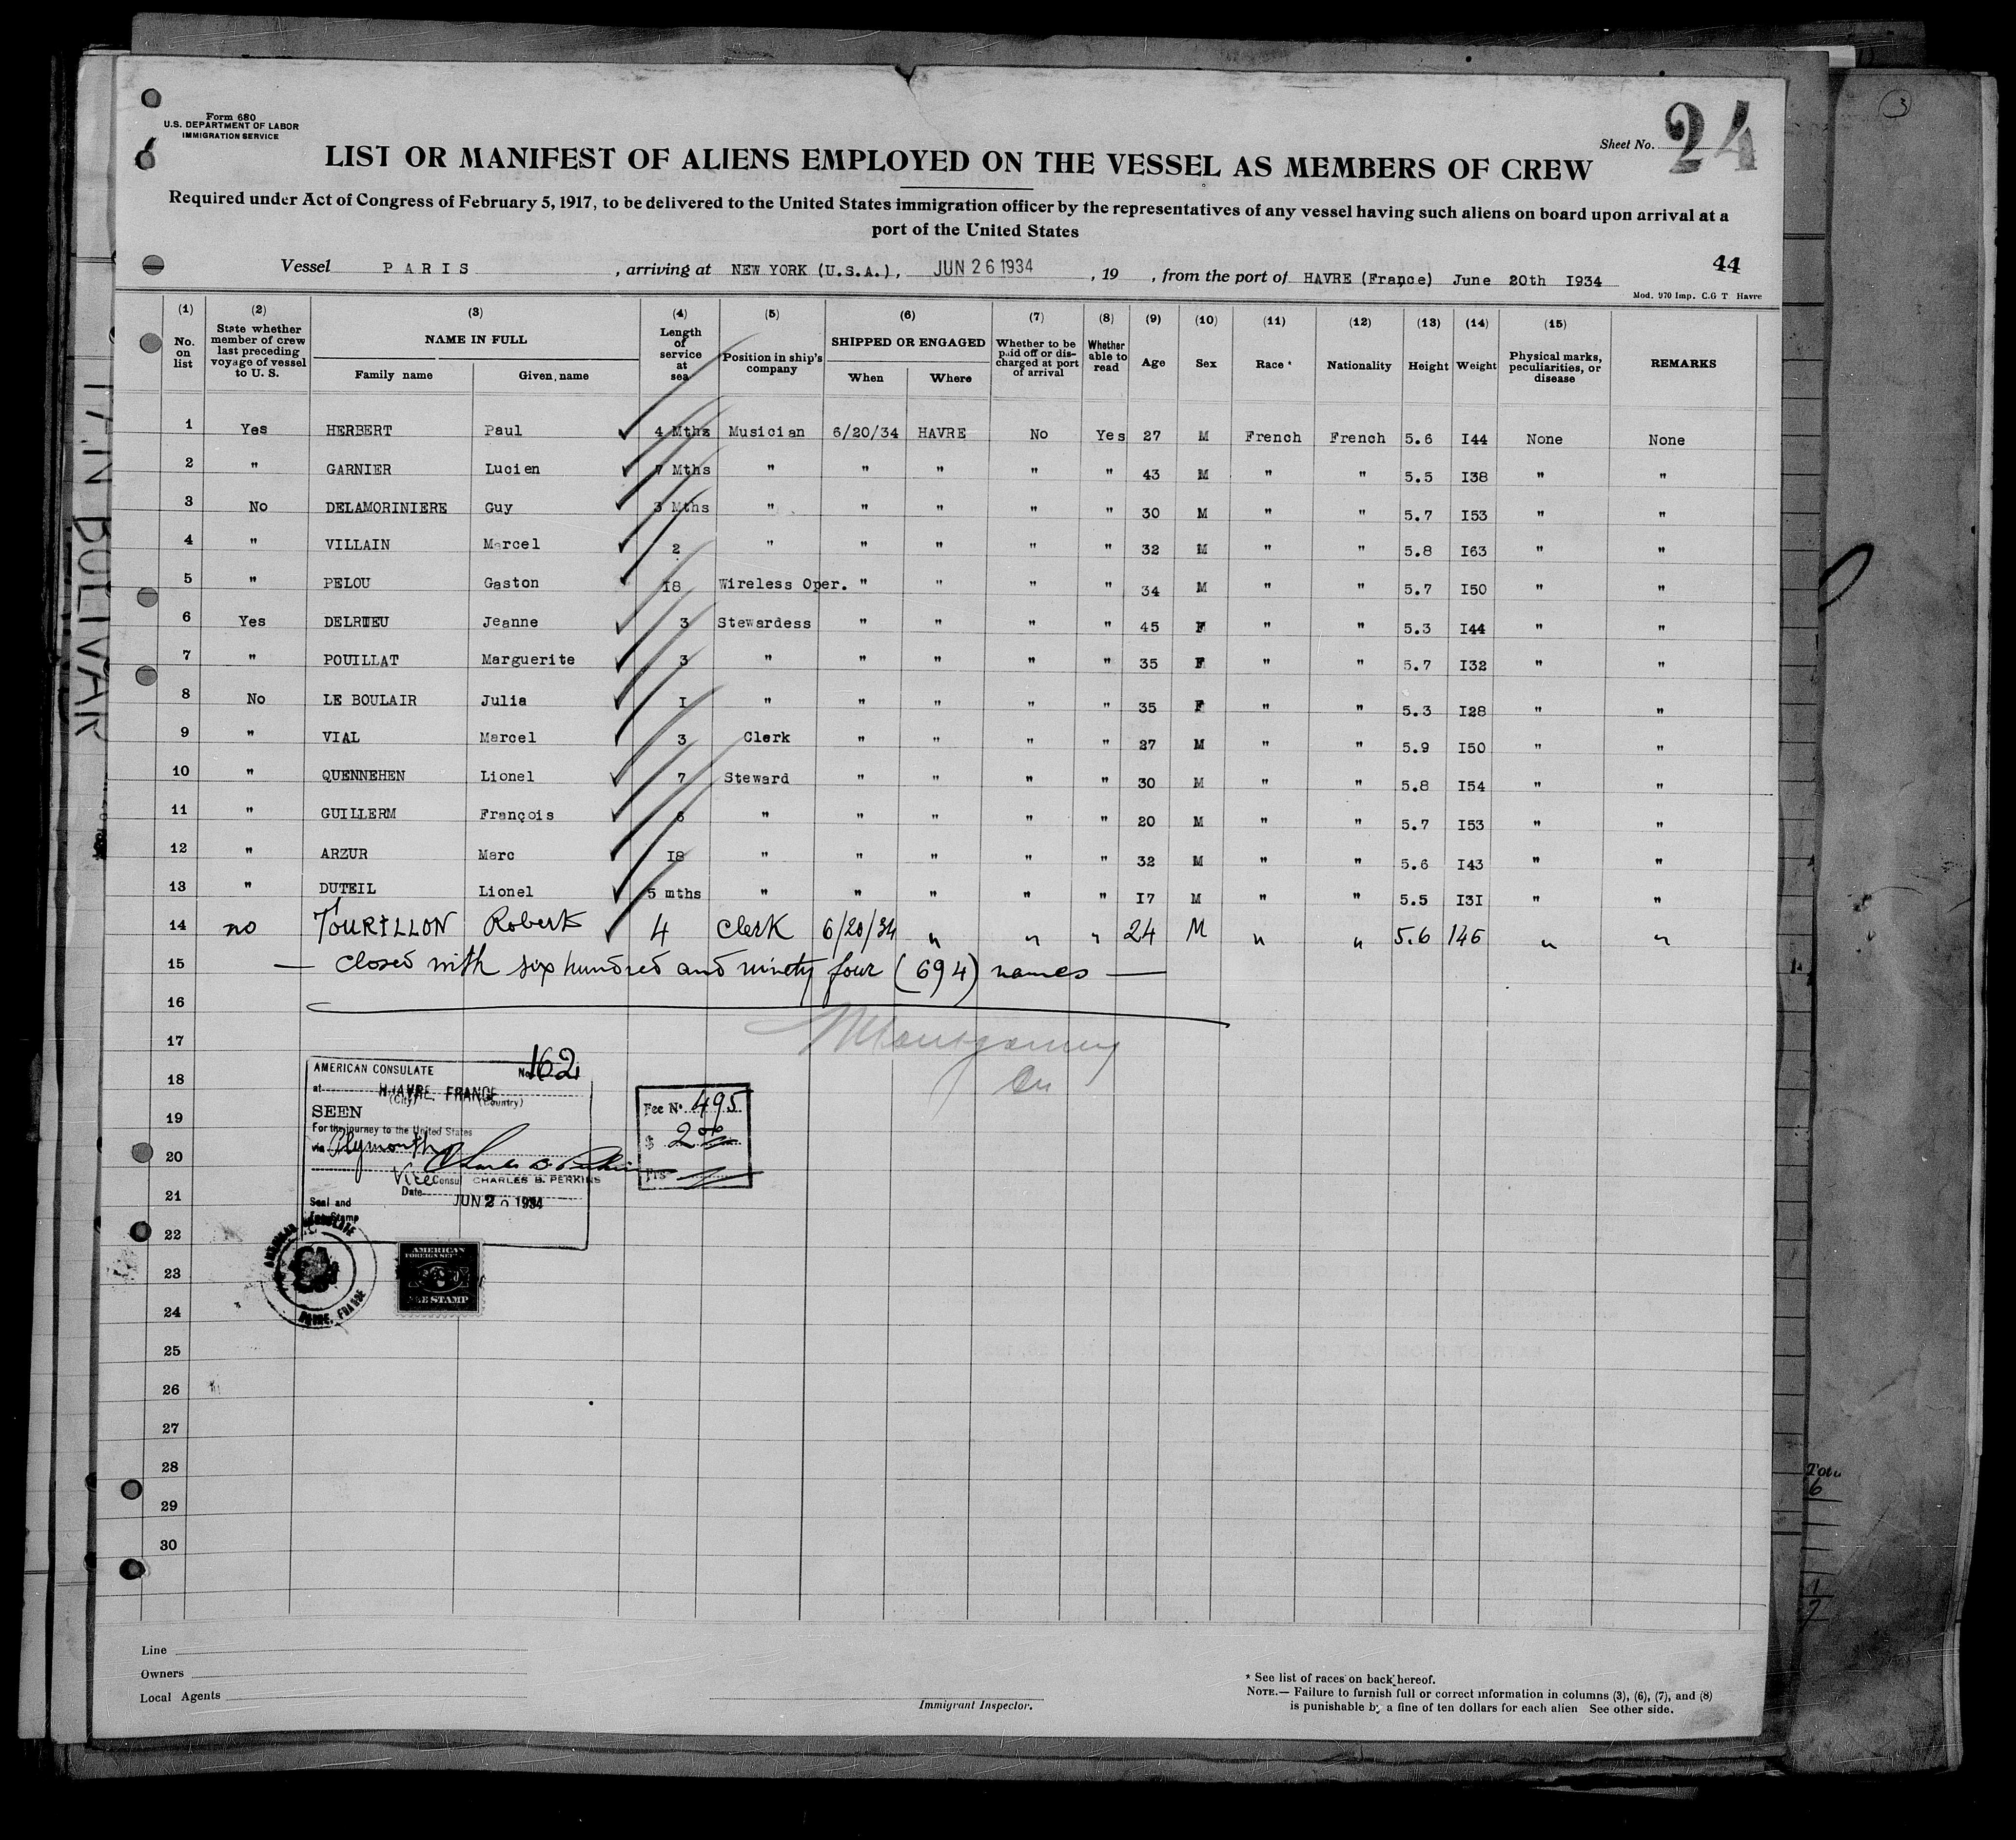 3
Form 680
U.S. DEPARTMENT OF LABOR
IMMIGRATION SERVICE
Sheet No. 24
LIST OR MANIFEST OF ALIENS EMPLOYED ON THE VESSEL AS MEMBERS OF CREW
Required under Act of Congress of February 5, 1917, to be delivered to the United States immigration officer by the representatives of any vessel having such aliens on board upon arrival at a
port of the United States
44
Vessel PARIS , arriving at NEW YORK (U.S.A.), JUN 26 1934 , 19 , from the port of HAVRE (France) June 20th I934
Mod. 970 Imp. C.G T Havre
(1) (2) (3) (4) (5) (6) (7) (8) (9) (10) (11) (12) (13) (14) (15)
No. on list State whether member of crew last preceding voyage of vessel to U. S. NAME IN FULL Length of service at sea Position in ship's company SHIPPED OR ENGAGED Whether to be paid off or discharged at port of arrival Whether able to read Age Sex Race * Nationality Height Weight Physical marks, peculiarities, or disease REMARKS
Family name Given name When Where
1 Yes HERBERT Paul 4 Mths Musician 6/20/34 HAVRE No Yes 27 M French French 5.6 I44 None None
2 " GARNIER Lucien 7 Mths " " " " " 43 M " " 5.5 I38 " "
3 No DELAMORINIERE Guy 3 Mths " " " " " 30 M " " 5.7 I53 " "
4 " VILLAIN Marcel 2 " " " " " 32 M " " 5.8 I63 " "
5 " PELOU Gaston I8 Wireless Oper. " " " " 34 M " " 5.7 I50 " "
6 Yes DELRIEU Jeanne 3 Stewardess " " " " 45 F " " 5.3 I44 " "
7 " POUILLAT Marguerite 3 " " " " " 35 F " " 5.7 I32 " "
8 No LE BOULAIR Julia I " " " " " 35 F " " 5.3 I28 " "
9 " VIAL Marcel 3 Clerk " " " " 27 M " " 5.9 I50 " "
10 " QUENNEHEN Lionel 7 Steward " " " " 30 M " " 5.8 I54 " "
11 " GUILLERM François 6 " " " " " 20 M " " 5.7 I53 " "
12 " ARZUR Marc I8 " " " " " 32 M " " 5.6 I43 " "
13 " DUTEIL Lionel 5 mths " " " " " I7 M " " 5.5 I3I " "
14 no TOURILLON Robert 4 Clerk 6/20/34 " " " 24 M " " 5.6 146 " "
15 — closed with six hundred and ninety four (694) names —
16
17 Montgomery
18
19
20
21
22
23
24
25
26
27
28
29
30
AMERICAN CONSULATE No. 162
at HAVRE, FRANCE
(City) (Country)
SEEN
For the journey to the United States
via Plymouth
Charles B. Perkins
Vice Consul CHARLES B. PERKINS
Date JUN 20 1934
Seal and
Fee Stamp
Fee No. 495
$ 2.00
Frs
AMERICAN CONSULATE
HAVRE, FRANCE
AMERICAN
FOREIGN SERVICE
FEE STAMP
Line
Owners
Local Agents
Immigrant Inspector.
* See list of races on back hereof.
NOTE.— Failure to furnish full or correct information in columns (3), (6), (7), and (8)
is punishable by a fine of ten dollars for each alien See other side.
BOLIVAR